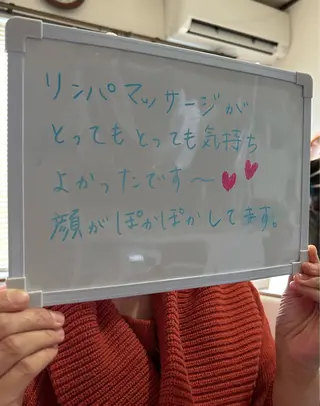 リンパマッサージが
とってもとっても気持ち
よかったです〜♥♥
顔がぽかぽかしてます。